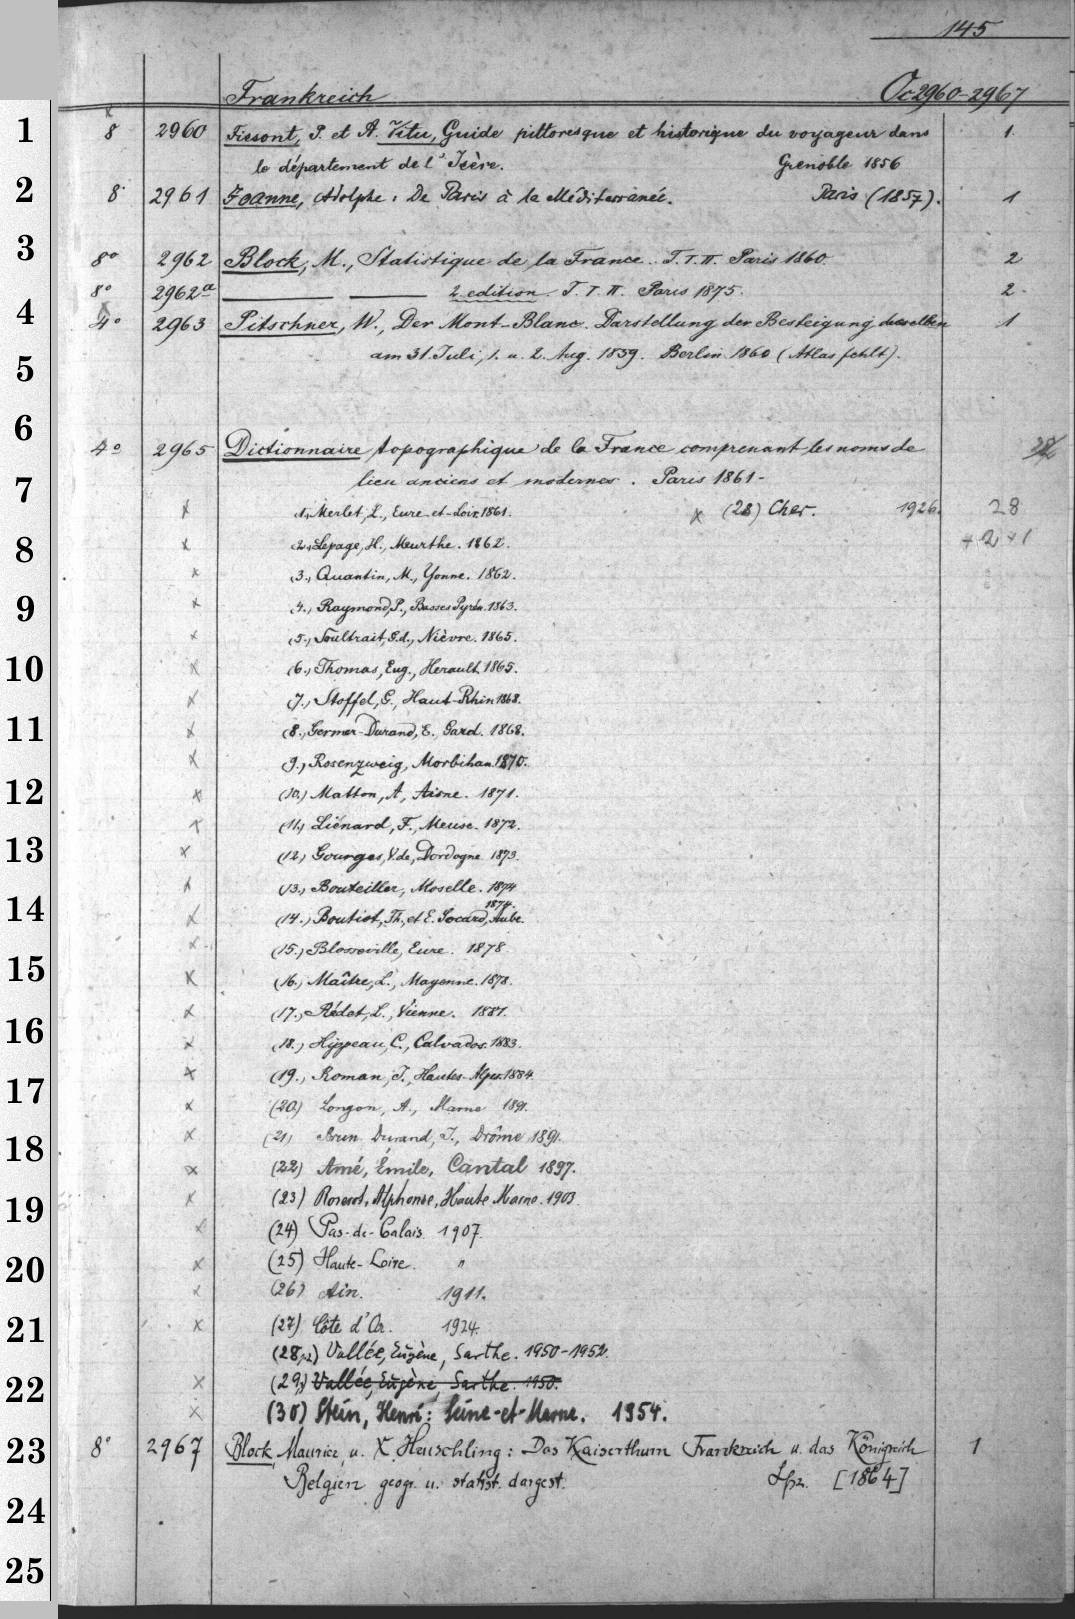 145
Frankreich Oc 2960-2967
8 2960 Fissont, P. et A. Vitu, Guide pittoresque et historique du voyageur dans 1.
le département de l'Isère. Grenoble 1856
8° 2961 Joanne, Adolphe: De Paris à la Méditerranée. Paris (1857). 1
8° 2962 Block, M., Statistique de la France. T. I. II. Paris 1860. 2
8° 2962a 2. edition. T. I. II. Paris 1875. 2
4° 2963 Pitschner, W., Der Mont-Blanc. Darstellung der Besteigung desselben 1
am 31. Juli, 1. u. 2. Aug. 1859. Berlin 1860 (Atlas fehlt).
4° 2965 Dictionnaire topographique de la France comprenant les noms de
lieu anciens et modernes. Paris 1861-
x (1.) Merlet, L., Eure-et-Loir 1861. x (28) Cher. 1926. 28
x (2.) Lepage, H., Meurthe. 1862. +2+1
x (3.) Quantin, M., Yonne. 1862.
x (4.) Raymond, P., Basses Pyrén. 1863.
x (5.) Soultrait, G.d., Nièvre. 1865.
x (6.) Thomas, Eug., Herault. 1865.
x (7.) Stoffel, G., Haut-Rhin 1868.
x (8.) Germer-Durand, E., Gard. 1868.
x (9.) Rosenzweig, Morbihan. 1870.
x (10.) Matton, A., Aisne. 1871.
x (11.) Liénard, F., Meuse. 1872.
x (12.) Gourges, V. de, Dordogne 1873.
x (13.) Bouteiller, Moselle. 1874
x (14.) Boutiot, Th., et E. Socard, Aube. 1874.
x (15.) Blosseville, Eure. 1878.
x (16.) Maître, L., Mayenne. 1878.
x (17.) Rédet, L., Vienne. 1881.
x (18.) Hippeau, C., Calvados. 1883.
x (19.) Roman, J., Hautes-Alpes. 1884.
x (20.) Longon, A., Marne 1891.
x (21) Brun-Durand, J., Drôme 1891.
x (22) Amé, Émile, Cantal 1897.
x (23) Roserot, Alphonse, Haute Marne. 1903.
x (24) Pas-de-Calais. 1907.
x (25) Haute-Loire. "
x (26) Ain. 1911.
x (27) Côte d'Or. 1924.
(28,2) Vallée, Eugène, Sarthe. 1950-1952.
x (29,) Vallée, Eugène, Sarthe. 1950.
x (30) Stein, Henri: Seine-et-Marne. 1954.
8° 2967 Block, Maurice, u. X. Heuschling: Das Kaiserthum Frankreich u. das Königreich 1
Belgien geogr. u. statist. dargest. Lpz. [1864]
1
2
3
4
5
6
7
8
9
10
11
12
13
14
15
16
17
18
19
20
21
22
23
24
25